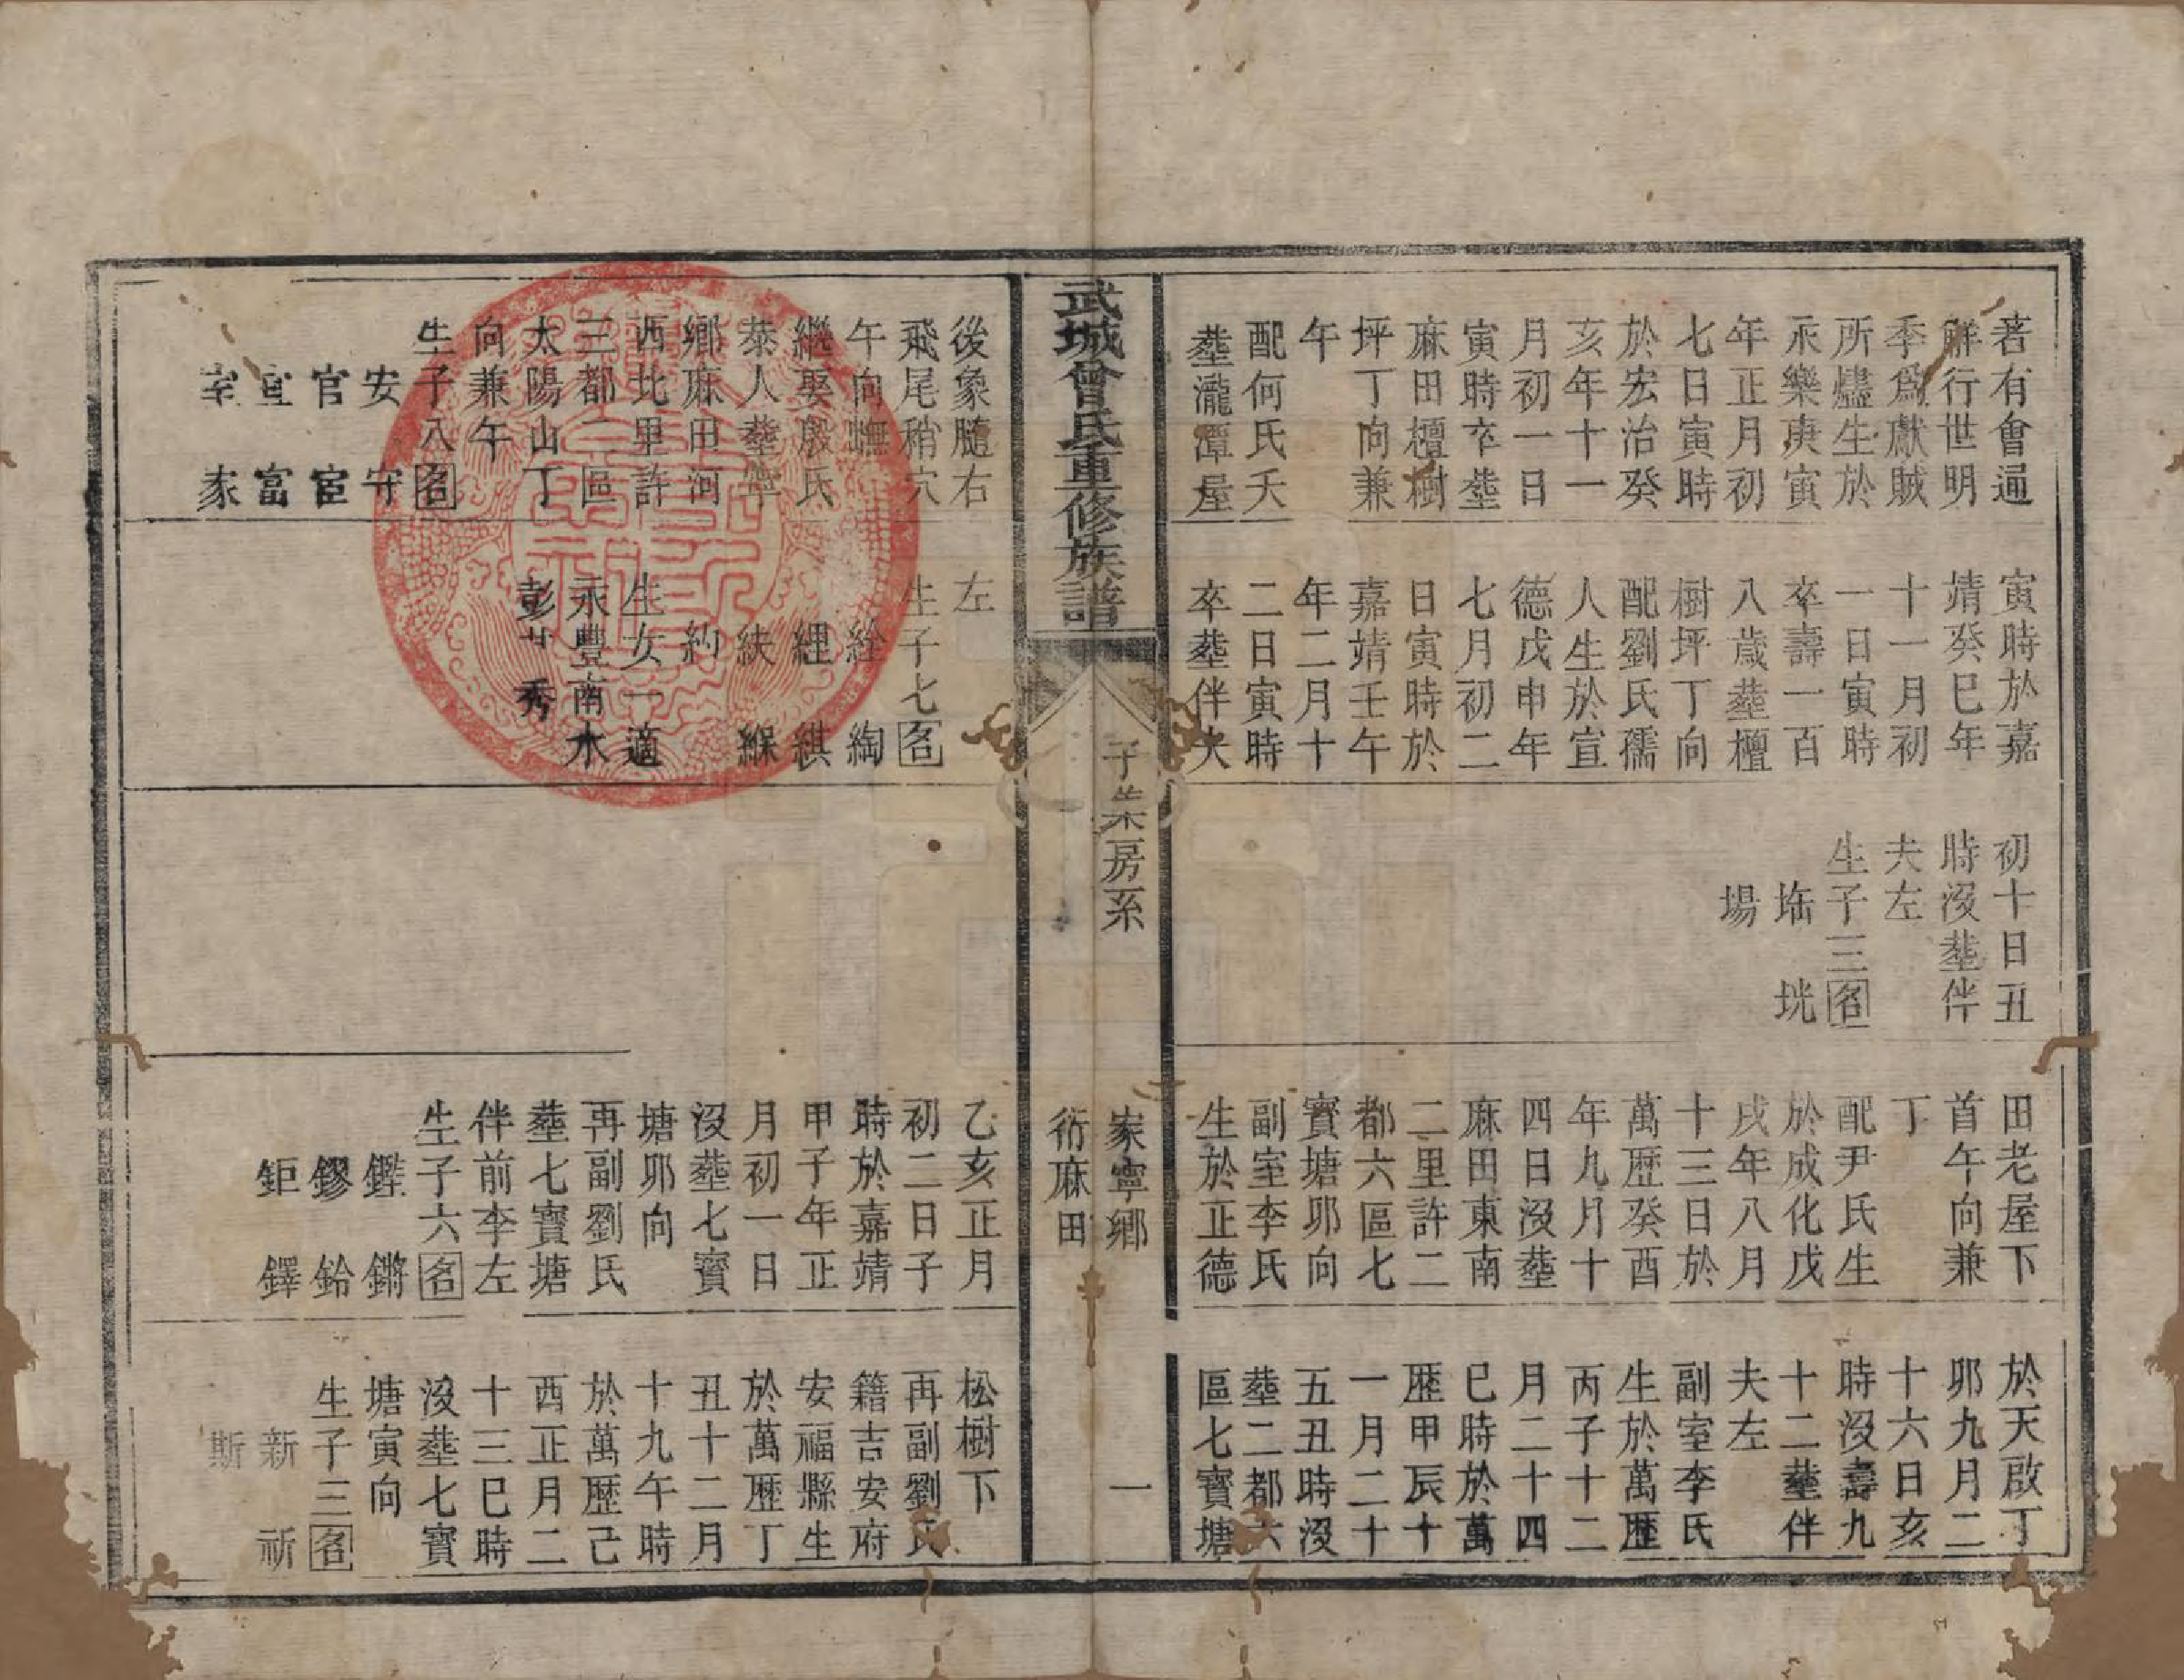 著有會通
解行世明
季爲獻賊
所燼生於
永樂庚寅
年正月初
七日寅時
於宏治癸
亥年十一
月初一日
寅時卒塟
麻田檀樹
坪丁向兼
午
配何氏夭
塟瀧潭屋
寅時於嘉
靖癸巳年
十一月初
一日寅時
卒壽一百
八歲塟檀
樹坪丁向
配劉氏孺
人生於宣
德戊申年
七月初二
日寅時於
嘉靖壬午
年二月十
二日寅時
卒塟伴夫
初十日丑
時沒塟伴
夫左
生子三名
垢 垙
場
田老屋下
首午向兼
丁
配尹氏生
於成化戊
戌年八月
十三日於
萬歴癸酉
年九月十
四日沒塟
麻田東南
二里許二
都六區七
寶塘卯向
副室李氏
生於正德
於天啟丁
卯九月二
十六日亥
時沒壽九
十二塟伴
夫左
副室李氏
生於萬歴
丙子十二
月二十四
巳時於萬
歴甲辰十
一月二十
五丑時沒
塟二都六
區七寶塘
武城曾氏重修族譜
子柒房系
家寧鄉
衍麻田
一
後象隨右
飛尾稍穴
午向
繼娶殷氏
泰人塟寧
鄉麻田河
西北里許
三都二區
太陽山丁
向兼午
生子八名
安 守
官 宦
宜 富
家
左
生子七名
絟 綯
綎 綨
紩 緥
約
生女一適
永豐南水
彭 秀
乙亥正月
初二日子
時於嘉靖
甲子年正
月初一日
沒塟七寶
塘卯向
再副劉氏
塟七寶塘
伴前李左
生子六名
鏗 鏘
鏐 鈴
鉅 鐸
松樹下
再副劉氏
籍吉安府
安福縣生
於萬歴丁
丑十二月
十九午時
於萬歴己
酉正月二
十三巳時
沒塟七寶
塘寅向
生子三名
新 祈
斯